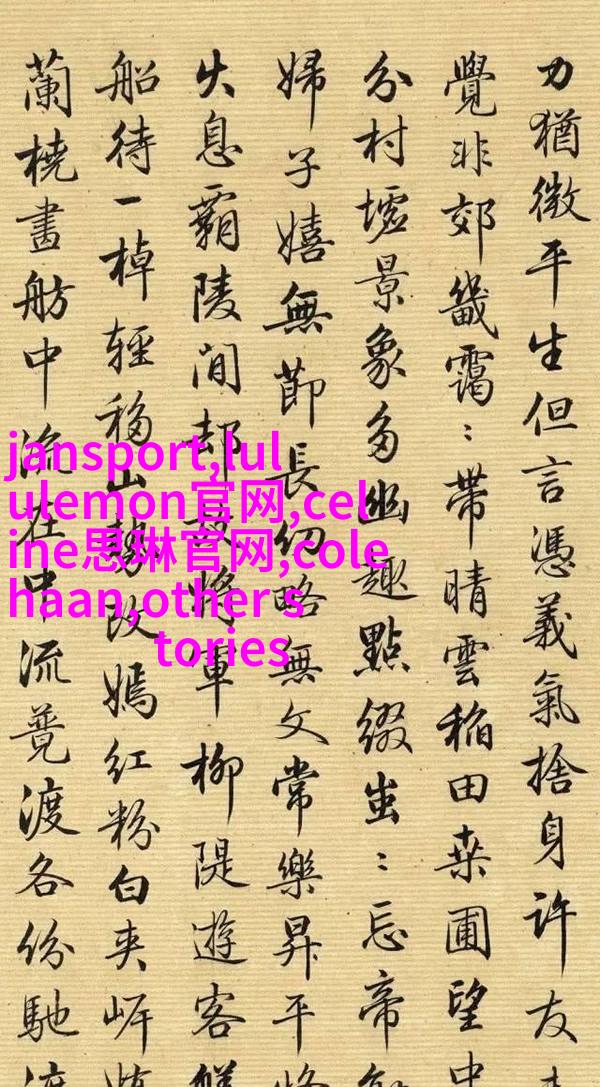 力猶微平生但言憑義氣捨身許友
覺非郊畿靄：帶晴雲稻田桒圃望中
分村墟景象多幽趣點綴蚩：忘帝
婦子嬉無節長幼略無文常樂昇平
息霸陵間却將軍柳隄遊客
船待一棹輕移山勢改嫣紅粉白夾岍
蘭橈畫舫中流在中流競渡各份馳
jansport,lul
ulemon官网,cel
ine思琳官网,cole
haan,other s
tories